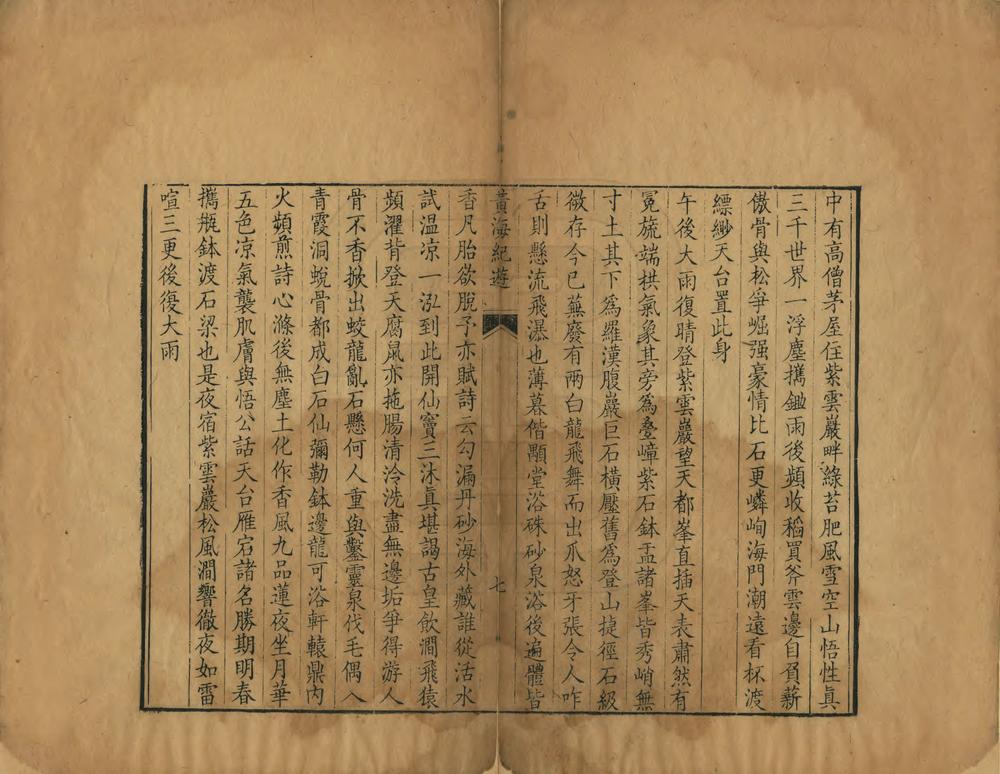 中有高僧茅屋住紫雲巖畔綠苔肥風雪空山悟性真
三千世界一浮塵攜鋤雨後頻收稻買斧雲邊自負薪
傲骨與松爭崛强豪情比石更嶙峋海門潮遠看杯渡
縹緲天台置此身
午後大雨復晴登紫雲巖望天都峯直插天表肅然有
冕旒端拱氣象其旁為疊嶂紫石鉢盂諸峯皆秀峭無
寸土其下為羅漢腹巖巨石橫壓舊為登山捷徑石級
微存今已蕪廢有兩白龍飛舞而出爪怒牙張令人咋
舌則懸流飛瀑也薄暮偕顒堂浴硃砂泉浴後遍體皆
黃海紀遊
七
香凡胎欲脫予亦賦詩云勾漏丹砂海外藏誰從活水
試温凉一泓到此開仙竇三沐真堪謁古皇飲澗飛猿
頻濯背登天腐鼠亦拖腸清泠洗盡無邊垢爭得游人
骨不香掀出蛟龍亂石懸何人重與鑿靈泉伐毛偶入
青霞洞蛻骨都成白石仙彌勒鉢邊龍可浴軒轅鼎內
火頻煎詩心滌後無塵土化作香風九品蓮夜坐月華
五色凉氣襲肌膚與悟公話天台雁宕諸名勝期明春
攜瓶鉢渡石梁也是夜宿紫雲巖松風澗響徹夜如雷
喧三更後復大雨